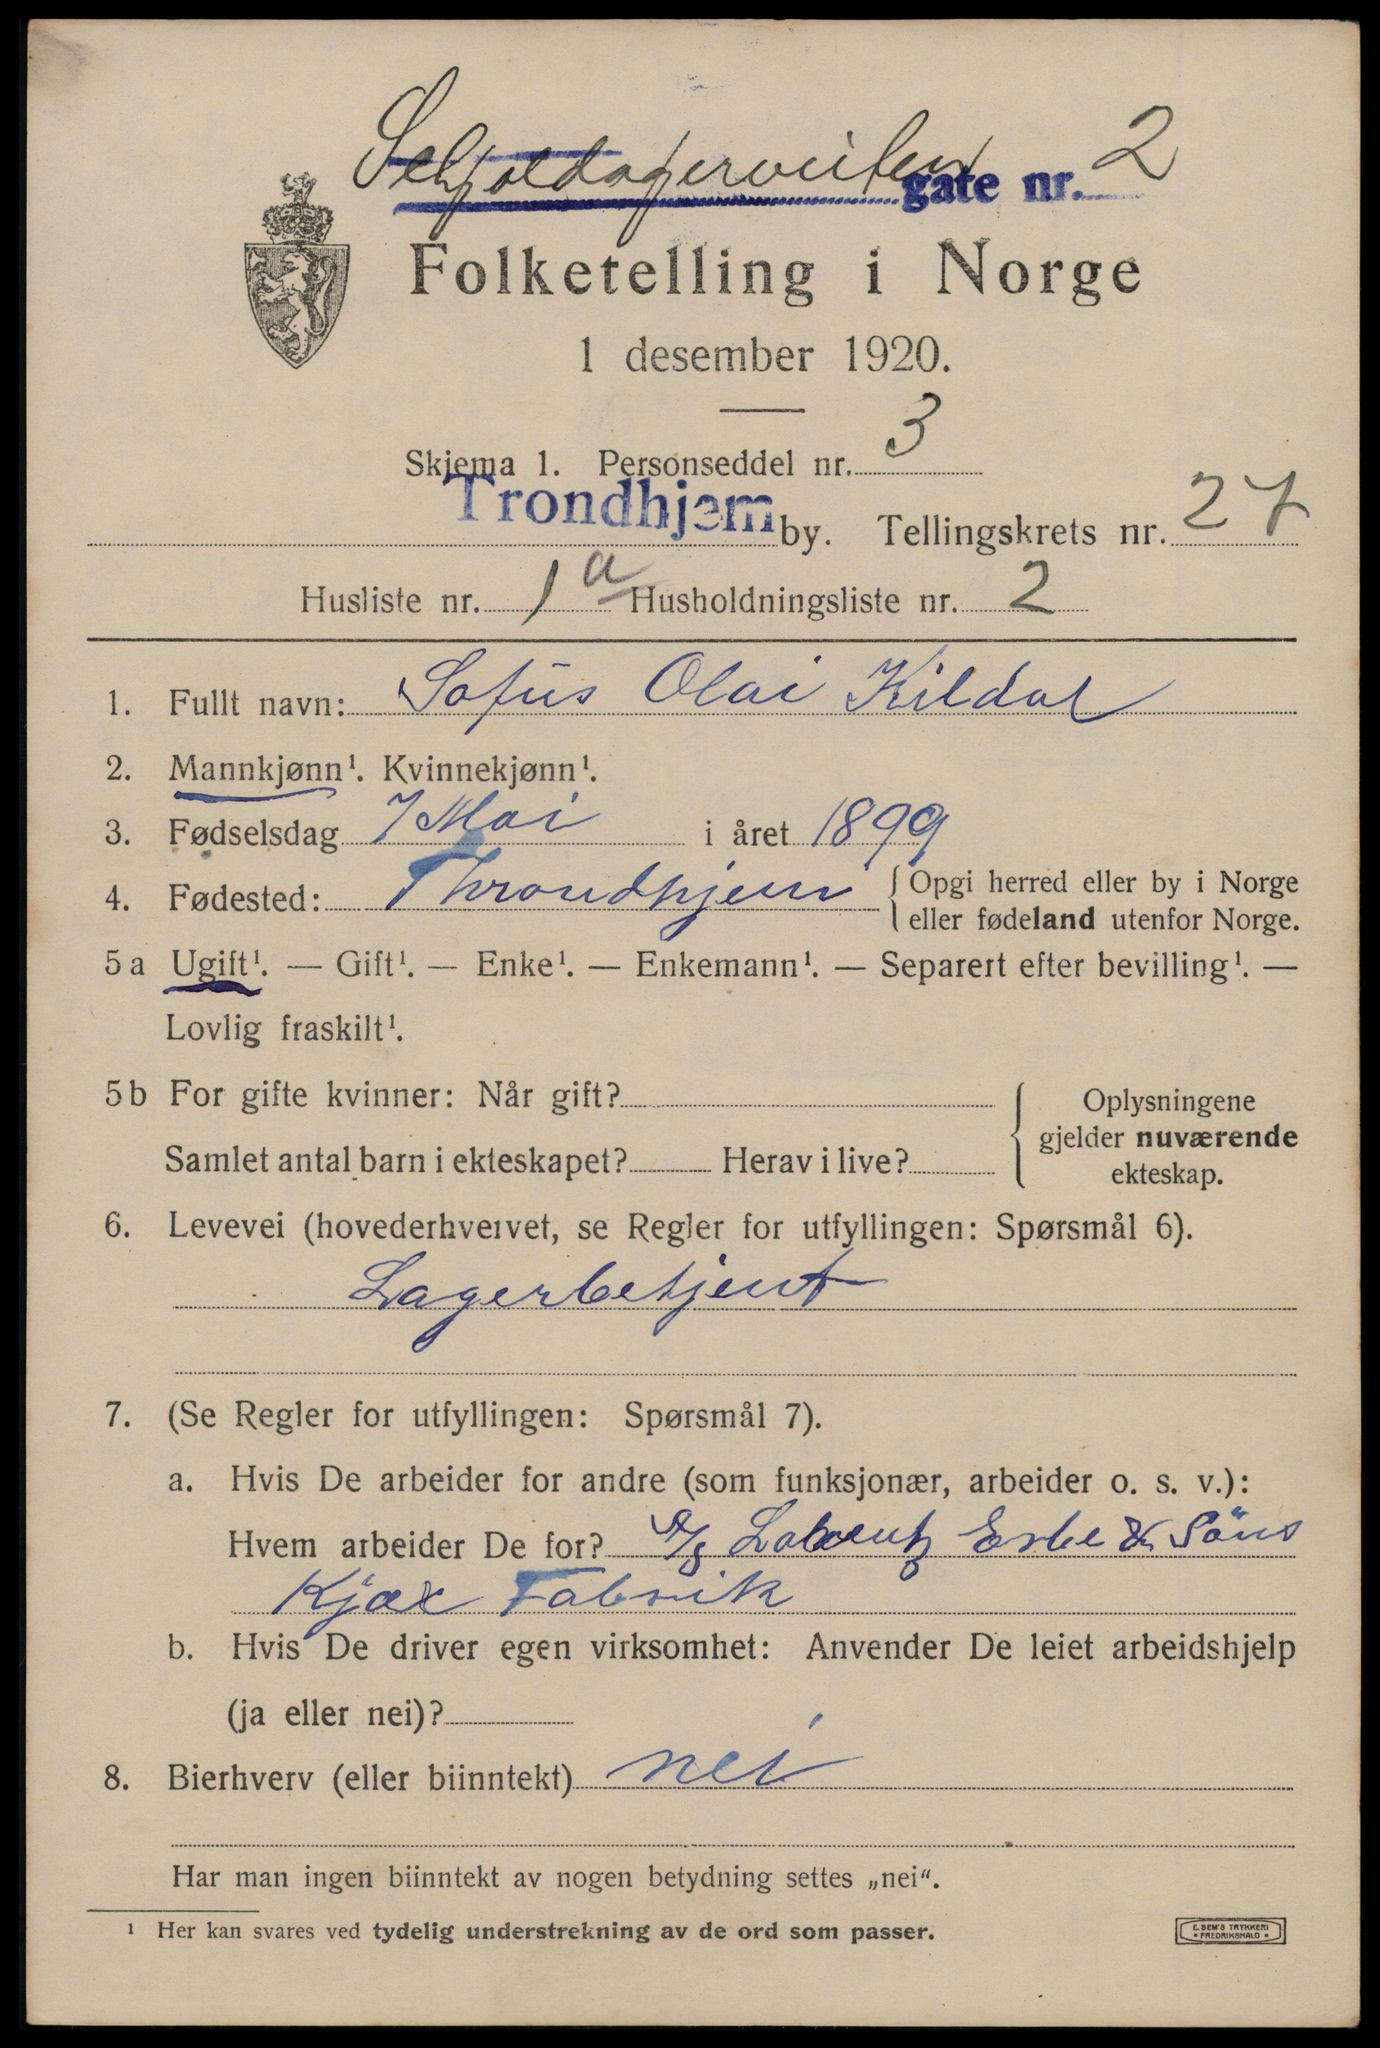 Schjoldagerveiten gate nr. 2
Folketelling i Norge
1 desember 1920.
Skjema 1. Personseddel nr. 3
Trondhjem by. Tellingskrets nr. 27
Husliste nr. 1 a Husholdningsliste nr. 2
1. Fullt navn: Sofus Olai Kildal
2. Mannkjønn¹. Kvinnekjønn¹.
3. Fødselsdag 7 Mai i året 1899
4. Fødested: Throndhjem { Opgi herred eller by i Norge
eller fødeland utenfor Norge.
5 a Ugift¹. — Gift¹. — Enke¹. — Enkemann¹. — Separert efter bevilling¹. —
Lovlig fraskilt¹.
5 b For gifte kvinner: Når gift?
Samlet antal barn i ekteskapet? Herav i live?
{ Oplysningene
gjelder nuværende
ekteskap.
6. Levevei (hovederhvervet, se Regler for utfyllingen: Spørsmål 6).
Lagerbetjent
7. (Se Regler for utfyllingen: Spørsmål 7).
a. Hvis De arbeider for andre (som funksjonær, arbeider o. s. v.):
Hvem arbeider De for? A/S Lorentz Erbe & Söns
Kjæx Fabrik
b. Hvis De driver egen virksomhet: Anvender De leiet arbeidshjelp
(ja eller nei)?
8. Bierhverv (eller biinntekt) nei
Har man ingen biinntekt av nogen betydning settes „nei“.
¹ Her kan svares ved tydelig understrekning av de ord som passer.
E. SEM'S TRYKKERI
• FREDRIKSHALD •